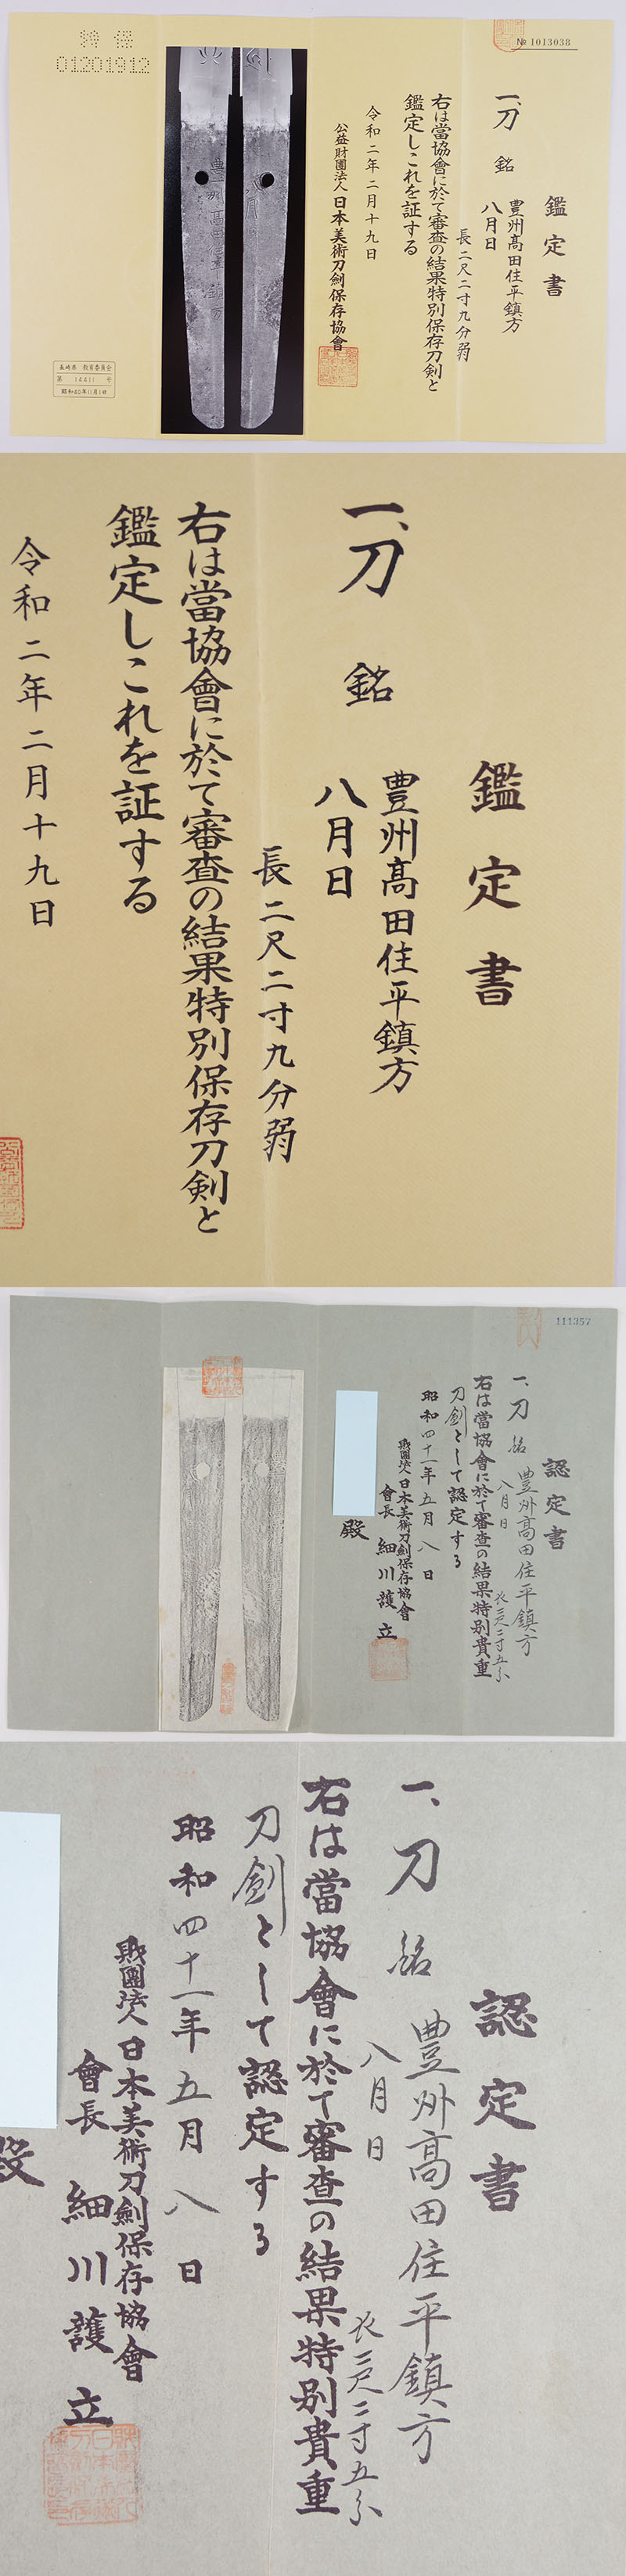 特保
01201912
№ 1013038
鑑定書
一、刀 銘 豊州髙田住平鎮方
八月日
長二尺二寸九分弱
右は當協會に於て審査の結果特別保存刀剣と
鑑定しこれを証する
令和二年二月十九日
公益財團法人 日本美術刀劍保存協會
長崎県 教育委員会
第 14411 号
昭和40年11月1日
鑑定書
一、刀 銘 豊州髙田住平鎮方
八月日
長二尺二寸九分弱
右は當協會に於て審査の結果特別保存刀剣と
鑑定しこれを証する
令和二年二月十九日
111357
認定書
一、刀 銘 豊州髙田住平鎮方
八月日
長二尺二寸五分
右は當協會に於て審査の結果特別貴重
刀劍として認定する
昭和四十一年五月八日
財團法人 日本美術刀劍保存協會
會長 細川護立
殿
認定書
一、刀 銘 豊州髙田住平鎮方
八月日
長二尺二寸五分
右は當協會に於て審査の結果特別貴重
刀劍として認定する
昭和四十一年五月八日
財團法人 日本美術刀劍保存協會
會長 細川護立
殿